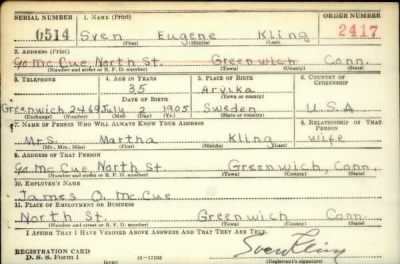 SERIAL NUMBER 1. NAME (Print) ORDER NUMBER
6514 Sven Eugene Kling 2417
(First) (Middle) (Last)
2. ADDRESS (Print)
℅ Mc Cue North St. Greenwich Conn.
(Number and street or R. F. D. number) (Town) (County) (State)
3. TELEPHONE 4. AGE IN YEARS 5. PLACE OF BIRTH 6. COUNTRY OF CITIZENSHIP
35 Arvika
DATE OF BIRTH (Town or county)
Greenwich 2469 July 2 1905 Sweden U.S.A
(Exchange) (Number) (Mo.) (Day) (Yr.) (State or country)
7. NAME OF PERSON WHO WILL ALWAYS KNOW YOUR ADDRESS 8. RELATIONSHIP OF THAT PERSON
Mrs. Martha Kling wife
(Mr., Mrs., Miss) (First) (Middle) (Last)
9. ADDRESS OF THAT PERSON
℅ Mc Cue North St. Greenwich, Conn.
(Number and street or R. F. D. number) (Town) (County) (State)
10. EMPLOYER'S NAME
James O. Mc Cue
11. PLACE OF EMPLOYMENT OR BUSINESS
North St. Greenwich Conn.
(Number and street or R. F. D. number) (Town) (County) (State)
I AFFIRM THAT I HAVE VERIFIED ABOVE ANSWERS AND THAT THEY ARE TRUE.
REGISTRATION CARD
D. S. S. Form 1 16—17105 Sven Kling
(Registrant's signature)